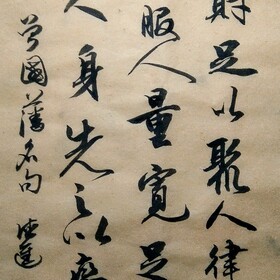 財足以聚人律
服人量寬足
人身先之以率
曾國藩名句